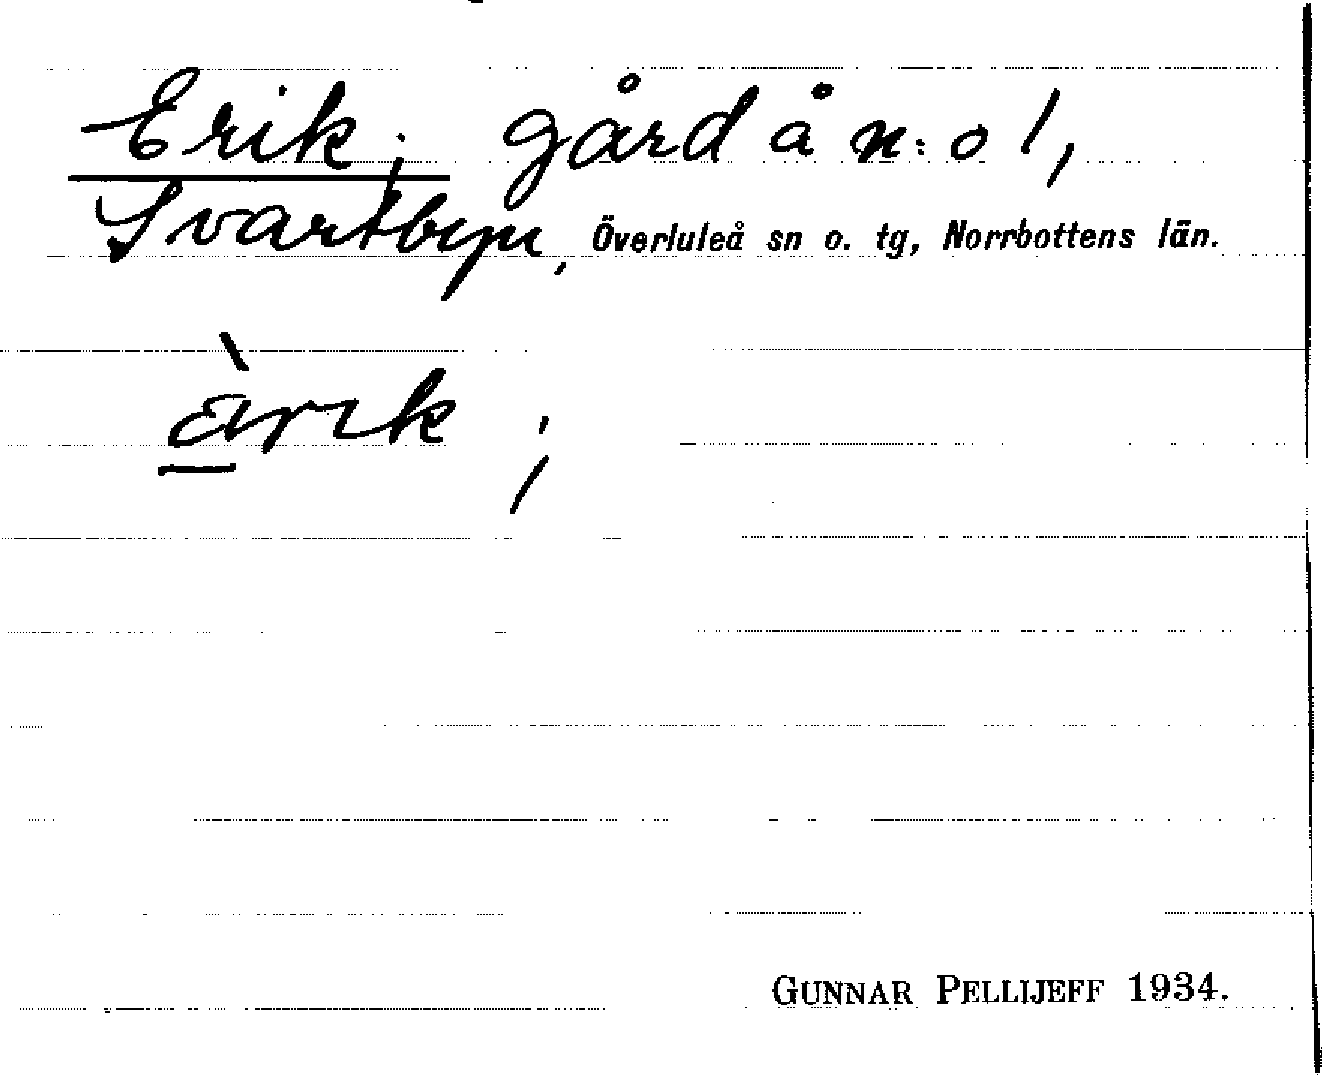 Erik; gård å n:o 1,
Svartbyn, Överluleå sn o. tg, Norrbottens län.
ὰrık ;
GUNNAR PELLIJEFF 1934.